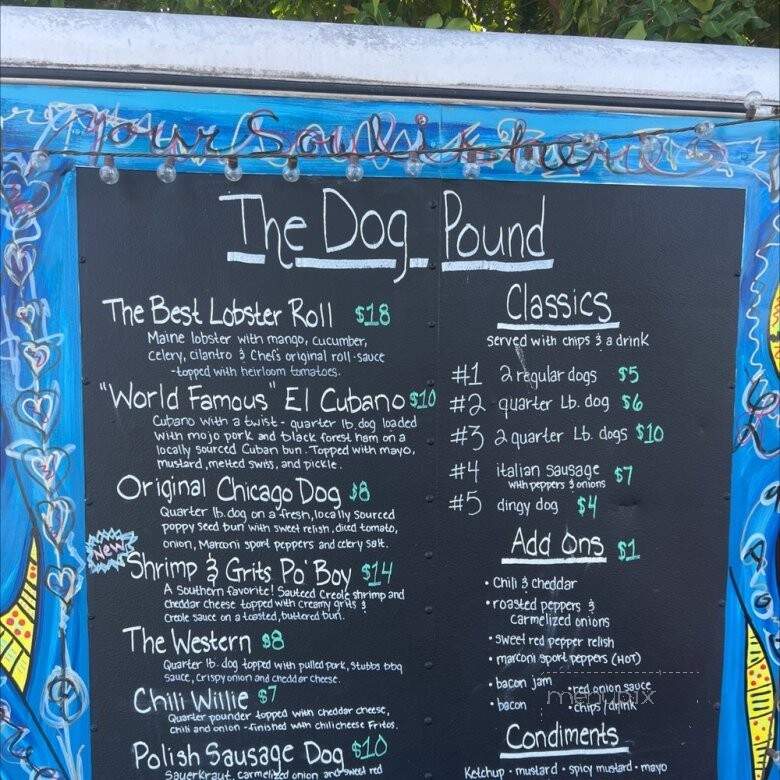 your Soul is here
The Dog Pound
The Best Lobster Roll $18
Maine lobster with mango, cucumber,
celery, cilantro & Chef's original roll-sauce
-topped with heirloom tomatoes.
"World Famous" El Cubano $10
Cubano with a twist - quarter lb. dog loaded
with mojo pork and black forest ham on a
locally sourced Cuban bun. Topped with mayo,
mustard, melted swiss, and pickle.
Original Chicago Dog $8
Quarter lb. dog on a fresh, locally sourced
poppy seed bun with sweet relish, diced tomato,
onion, Marconi sport peppers and celery salt.
New
Shrimp & Grits Po' Boy $14
A Southern favorite! Sauteed Creole shrimp and
cheddar cheese topped with creamy grits &
Creole sauce on a toasted, buttered bun.
The Western $8
Quarter lb. dog topped with pulled pork, Stubbs bbq
sauce, crispy onion and cheddar cheese.
Chili Willie $7
Quarter pounder topped with cheddar cheese,
chili and onion - finished with chili cheese Fritos.
Polish Sausage Dog $10
Sauerkraut, carmelized onion and sweet red
Classics
served with chips & a drink
#1 2 regular dogs $5
#2 quarter Lb. dog $6
#3 2 quarter Lb. dogs $10
#4 italian sausage $7
with peppers & onions
#5 dingy dog $4
Add Ons $1
• Chili & cheddar
• roasted peppers &
carmelized onions
• sweet red pepper relish
• marconi sport peppers (HOT)
• bacon jam • red onion sauce
• bacon • chips/drink
menupix
Condiments
Ketchup • mustard • spicy mustard • mayo